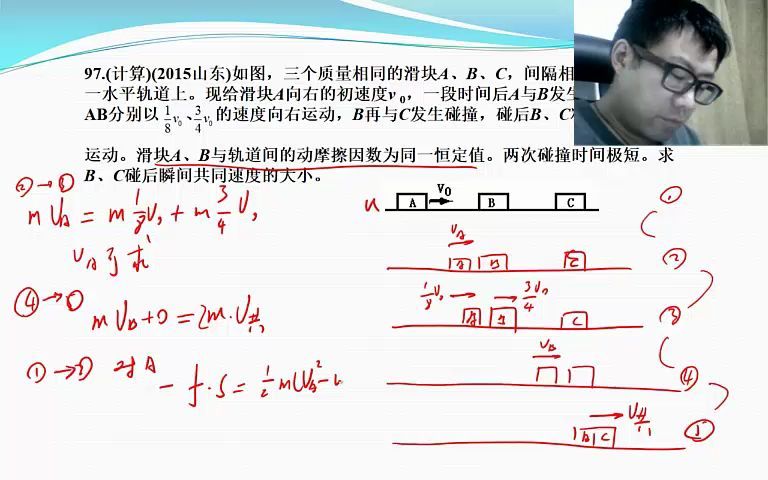 97.(计算)(2015山东)如图，三个质量相同的滑块A、B、C，间隔相
一水平轨道上。现给滑块A向右的初速度v₀，一段时间后A与B发生
AB分别以 1/8 v₀、3/4 v₀ 的速度向右运动，B再与C发生碰撞，碰后B、C
运动。滑块A、B与轨道间的动摩擦因数为同一恒定值。两次碰撞时间极短。求
B、C碰后瞬间共同速度的大小。
A v₀ B C
①
②→③
m v_A = m 1/8 v₀ + m 3/4 v₀
v_A 可求
v_A
A B C
②
1/8 v₀ 3/4 v₀
A B C
③
④→⑤
m v_B + 0 = 2m · v共
v_B
④
①→② 对A
- f · s = 1/2 m(v_A² -
v共
B C
⑤